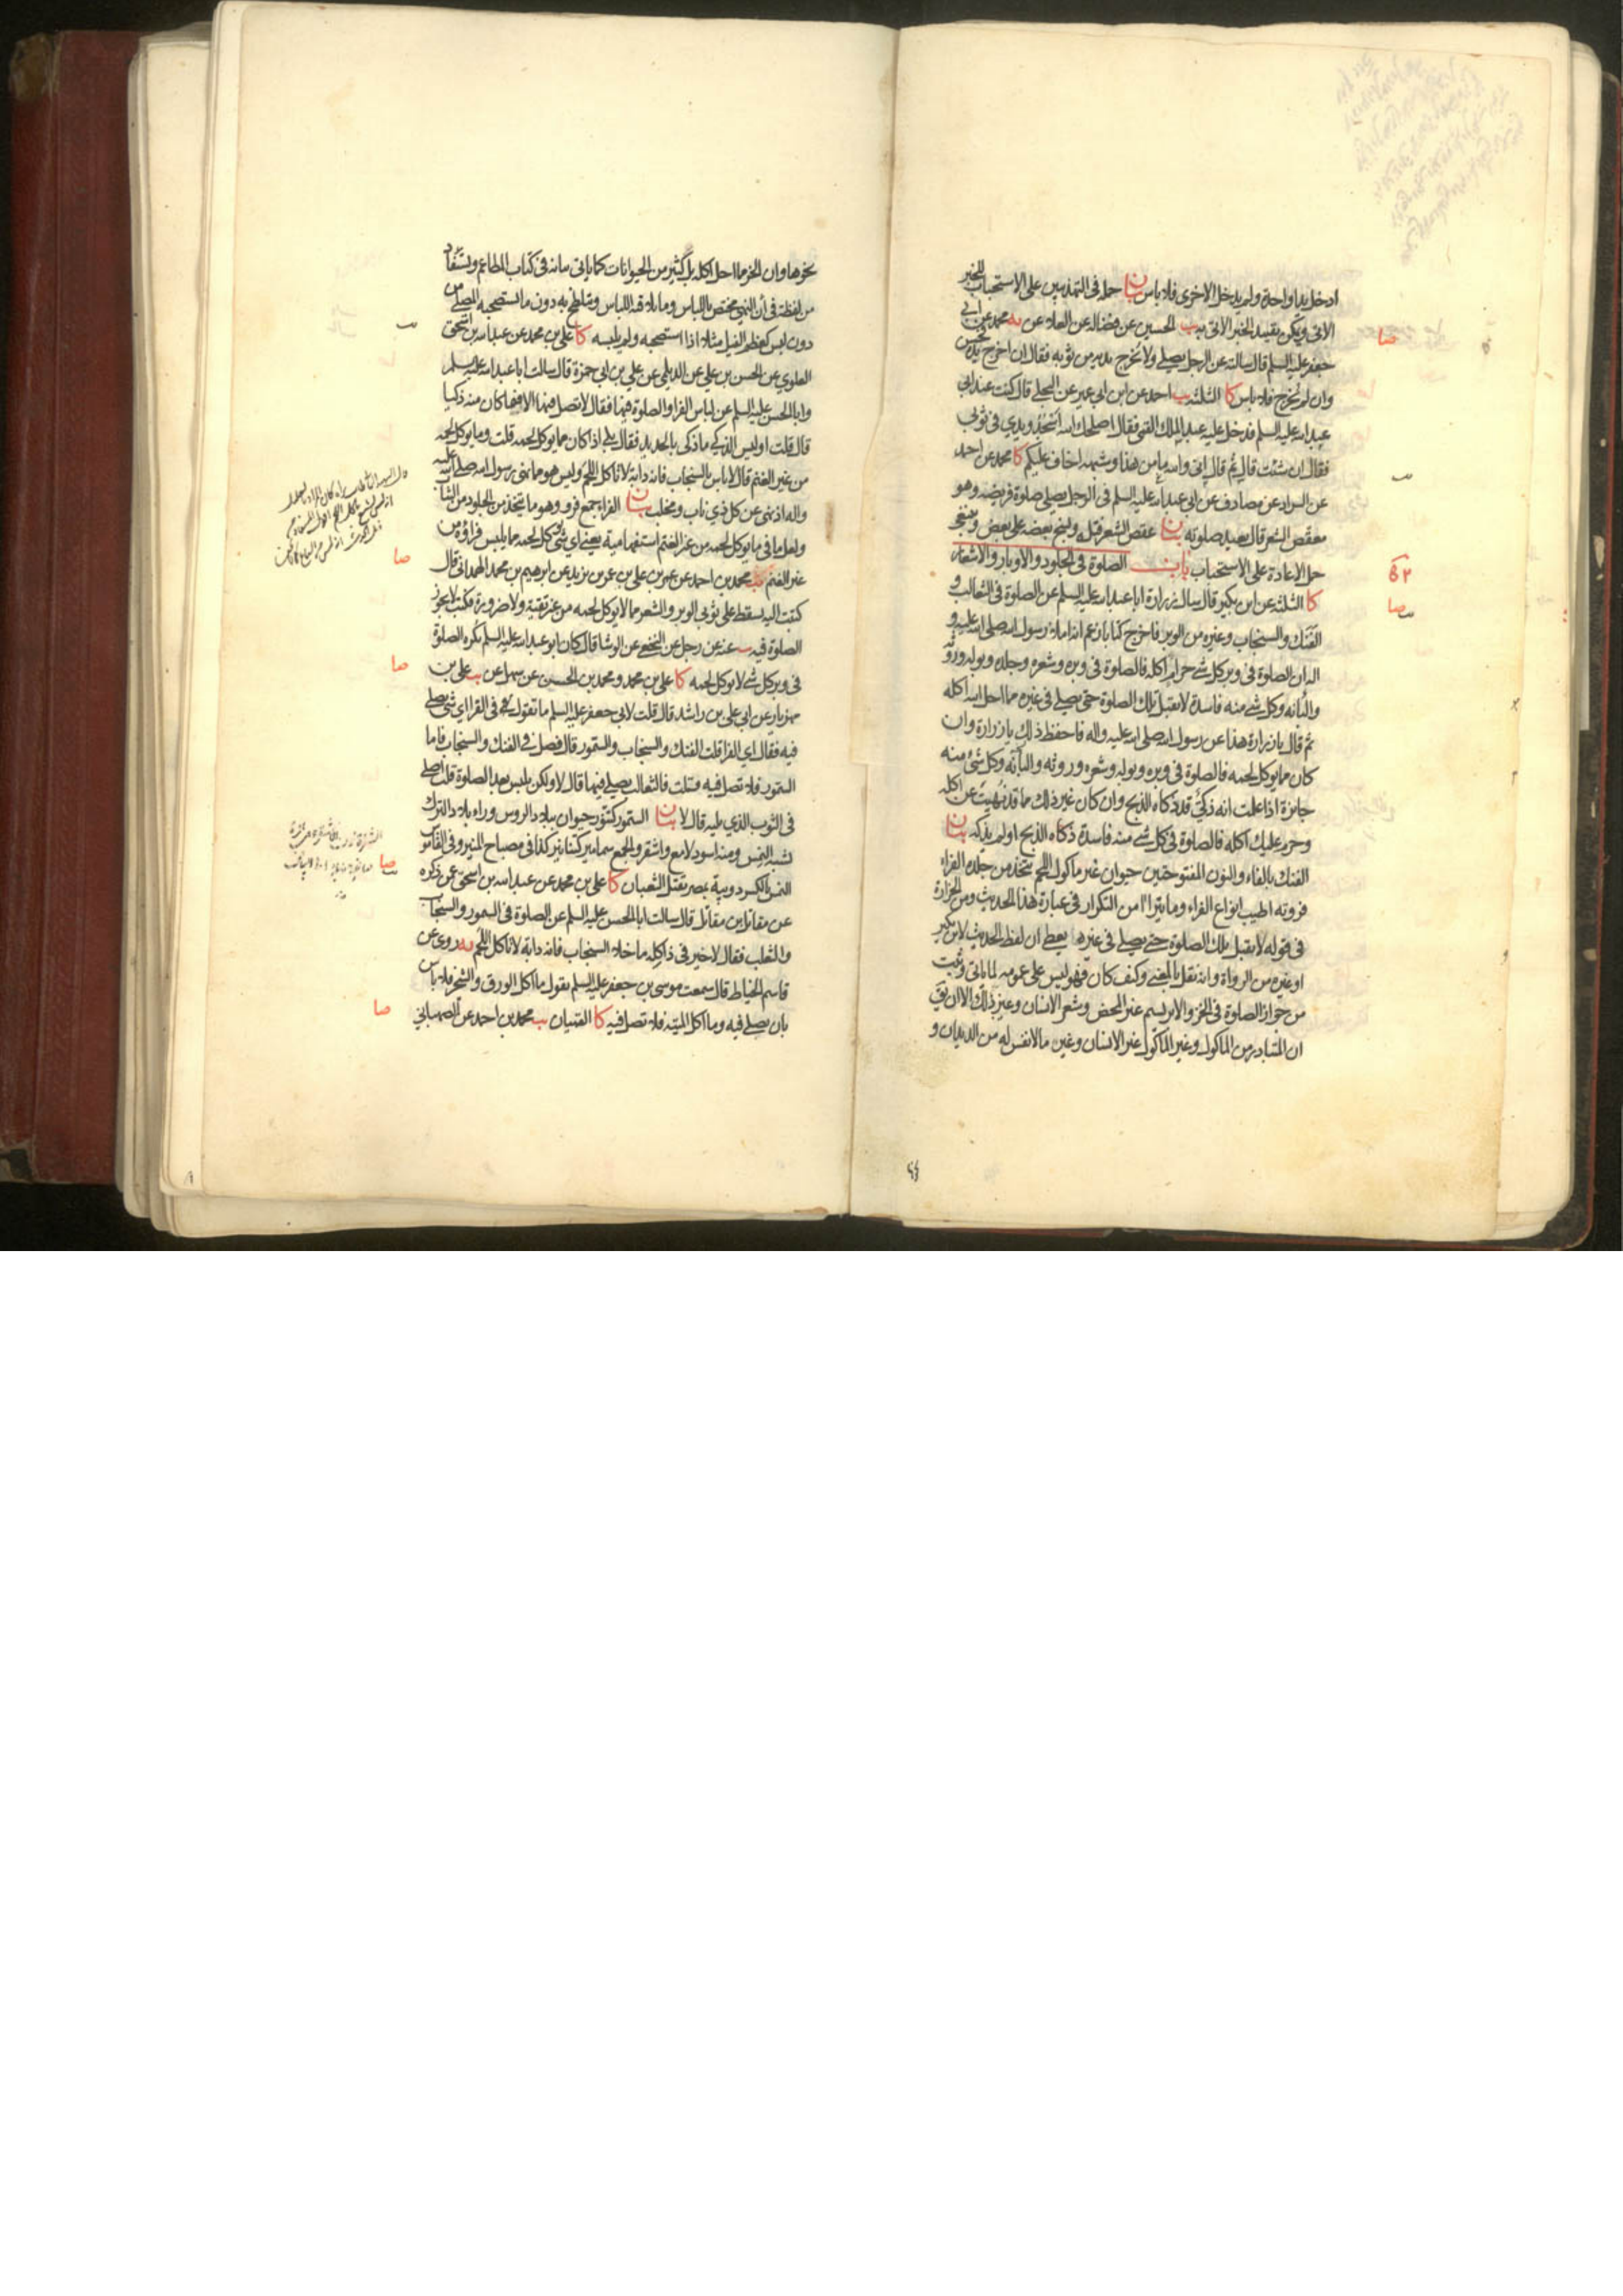 ادخل يدا واحدة ولم يدخل الاخرى فلا باس بيان حمله في التهذيبين على الاستحباب للخبر
الاتي ويمكن تقييد الخبر الاتي به يب الحسين عن فضالة عن العلاء عن يه محمد عن ابي
جعفر عليه السلم قال سالته عن الرجل يصلي ولا يخرج يديه من ثوبه فقال ان اخرج يديه فحسن
وان لم يخرج فلا باس كا الثلثة يب احمد عن ابن ابي عمير عن قال كنت عند ابي
عبد الله عليه السلم فدخل عليه عبد الملك القمي فقال اصلحك الله اسجد ويدي في ثوبي
فقال ان شئت قال ثم قال اني والله ما من هذا وشبهه اخاف عليكم كا محمد عن احمد
عن السراد عن مصادف عن ابي عبد الله عليه السلم في الرجل يصلي صلوة فريضة وهو
معقص الشعر قال يعيد صلوته بيان عقص الشعر فتله بعضه على بعض
حمل الاعادة على الاستحباب باب الصلوة في الجلود والاوبار والاشعار
كا الثلثة عن ابن بكير قال سال زرارة ابا عبد الله عليه السلم عن الصلوة في الثعالب و
الفنك والسنجاب وغيره من الوبر فاخرج كتابا زعم انه املاء رسول الله صلى الله عليه و
اله ان الصلوة في وبر كل شيء حرام اكله فالصلوة في وبره وشعره وجلده وبوله وروثه
والبانه وكل شيء منه فاسدة لا تقبل تلك الصلوة حتى يصلي في غيره مما احل الله اكله
ثم قال يا زرارة هذا عن رسول الله صلى الله عليه واله فاحفظ ذلك يا زرارة وان
كان مما يوكل لحمه فالصلوة في وبره وبوله وشعره وروثه والبانه وكل شيء منه
جايزة اذا علمت انه ذكي قد ذكاه الذبح وان كان غير ذلك مما قد نهيت عن اكله
وحرم عليك اكله فالصلوة في كل شيء منه فاسدة ذكاه الذبح او لم يذكه بيان
الفنك بالفاء والنون المفتوحتين حيوان غير ماكول اللحم يتخذ من جلده الفراء
فروته اطيب انواع الفراء وما يتراآ من التكرار في عبارة هذا الحديث ومن الحزازة
في قوله لا تقبل تلك الصلوة حتى يصلي في غيره يعطي ان لفظ الحديث لابن بكير
او غيره من الرواة وانه نقل بالمعنى وكيف كان فهو ليس على عمومه لما ياتي وثبت
من جواز الصلوة في الخز والابريسم غير المحض وشعر الانسان وغير ذلك الا ان
ان المتبادر من الماكول وغير الماكول غير الانسان وغير ما لا نفس له من الديدان و
نحوها وان الخز مما احل اكله بل كثير من الحيوانات كما ياتي بيانه في كتاب المطاعم ويستفاد
من لفظة في ان النهي مختص باللباس وما يلاقيه اللباس ويتلطخ به دون ما استصحبه المصلي من
دون لبس كعظم الفيل مثلا اذا استصحبه ولم يلبسه كا علي بن محمد عن عبد الله بن اسحق
العلوي عن الحسن بن علي عن الديلمي عن علي بن ابي حمزة قال سالت ابا عبد الله عليه السلم
وابا الحسن عليه السلم عن لباس الفرا والصلوة فيها فقال لا تصل فيها الا فيما كان منه ذكيا
قال قلت اوليس الذكي ما ذكي بالحديد فقال بلى اذا كان مما يوكل لحمه قلت وما يوكل لحمه
من غير الغنم قال لا باس بالسنجاب فانه دابة لا تاكل اللحم وليس هو مما نهى رسول الله صلى الله عليه
واله اذ نهى عن كل ذي ناب ومخلب بيان الفراء جمع فرو وهو ما يتخذ من الجلود من الثياب
ولعل ما في ما يوكل لحمه من غير الغنم استفهامية يعني اي شيء يوكل لحمه مما يلبس فراؤه من
غير الغنم يب محمد بن احمد عن عمر بن علي بن عمر بن يزيد عن ابرهيم بن محمد الهمداني قال
كتبت اليه يسقط على ثوبي الوبر والشعر مما لا يوكل لحمه من غير تقية ولا ضرورة فكتب لا يجوز
الصلوة فيه يب عنه عن رجل عن عن الوشا قال كان ابو عبد الله عليه السلم يكره الصلوة
في وبر كل شيء لا يوكل لحمه كا علي بن محمد ومحمد بن الحسن عن سهل عن يب علي بن
مهزيار عن ابي علي بن راشد قال قلت لابي جعفر عليه السلم ما تقول في الفرا اي شيء يصلى
فيه فقال اي الفرا قلت الفنك والسنجاب والسمور قال فصل في الفنك والسنجاب فاما
السمور فلا تصل فيه قلت فالثعالب يصلى فيها قال لا ولكن يلبس بعد الصلوة قلت اصلي
في الثوب الذي يليه قال لا بيان السمور كتنور حيوان ببلاد الروس وراء بلاد الترك
يشبه النمس ومنه اسود لامع واشقر والجمع سمامير كتنانير كذا في مصباح المنير وفي القاموس
النمس بالكسر دويبة بمصر تقتل الثعبان كا علي بن محمد عن عبد الله بن اسحق عمن ذكره
عن مقاتل بن مقاتل قال سالت ابا الحسن عليه السلم عن الصلوة في السمور والسنجاب
والثعلب فقال لا خير في ذا كله ما خلا السنجاب فانه دابة لا تاكل اللحم يه روي عن
قاسم الخياط قال سمعت موسى بن جعفر عليه السلم يقول ما اكل الورق والشجر فلا باس
بان يصلي فيه وما اكل الميتة فلا تصل فيه كا القميان يب محمد بن احمد عن الصهباني